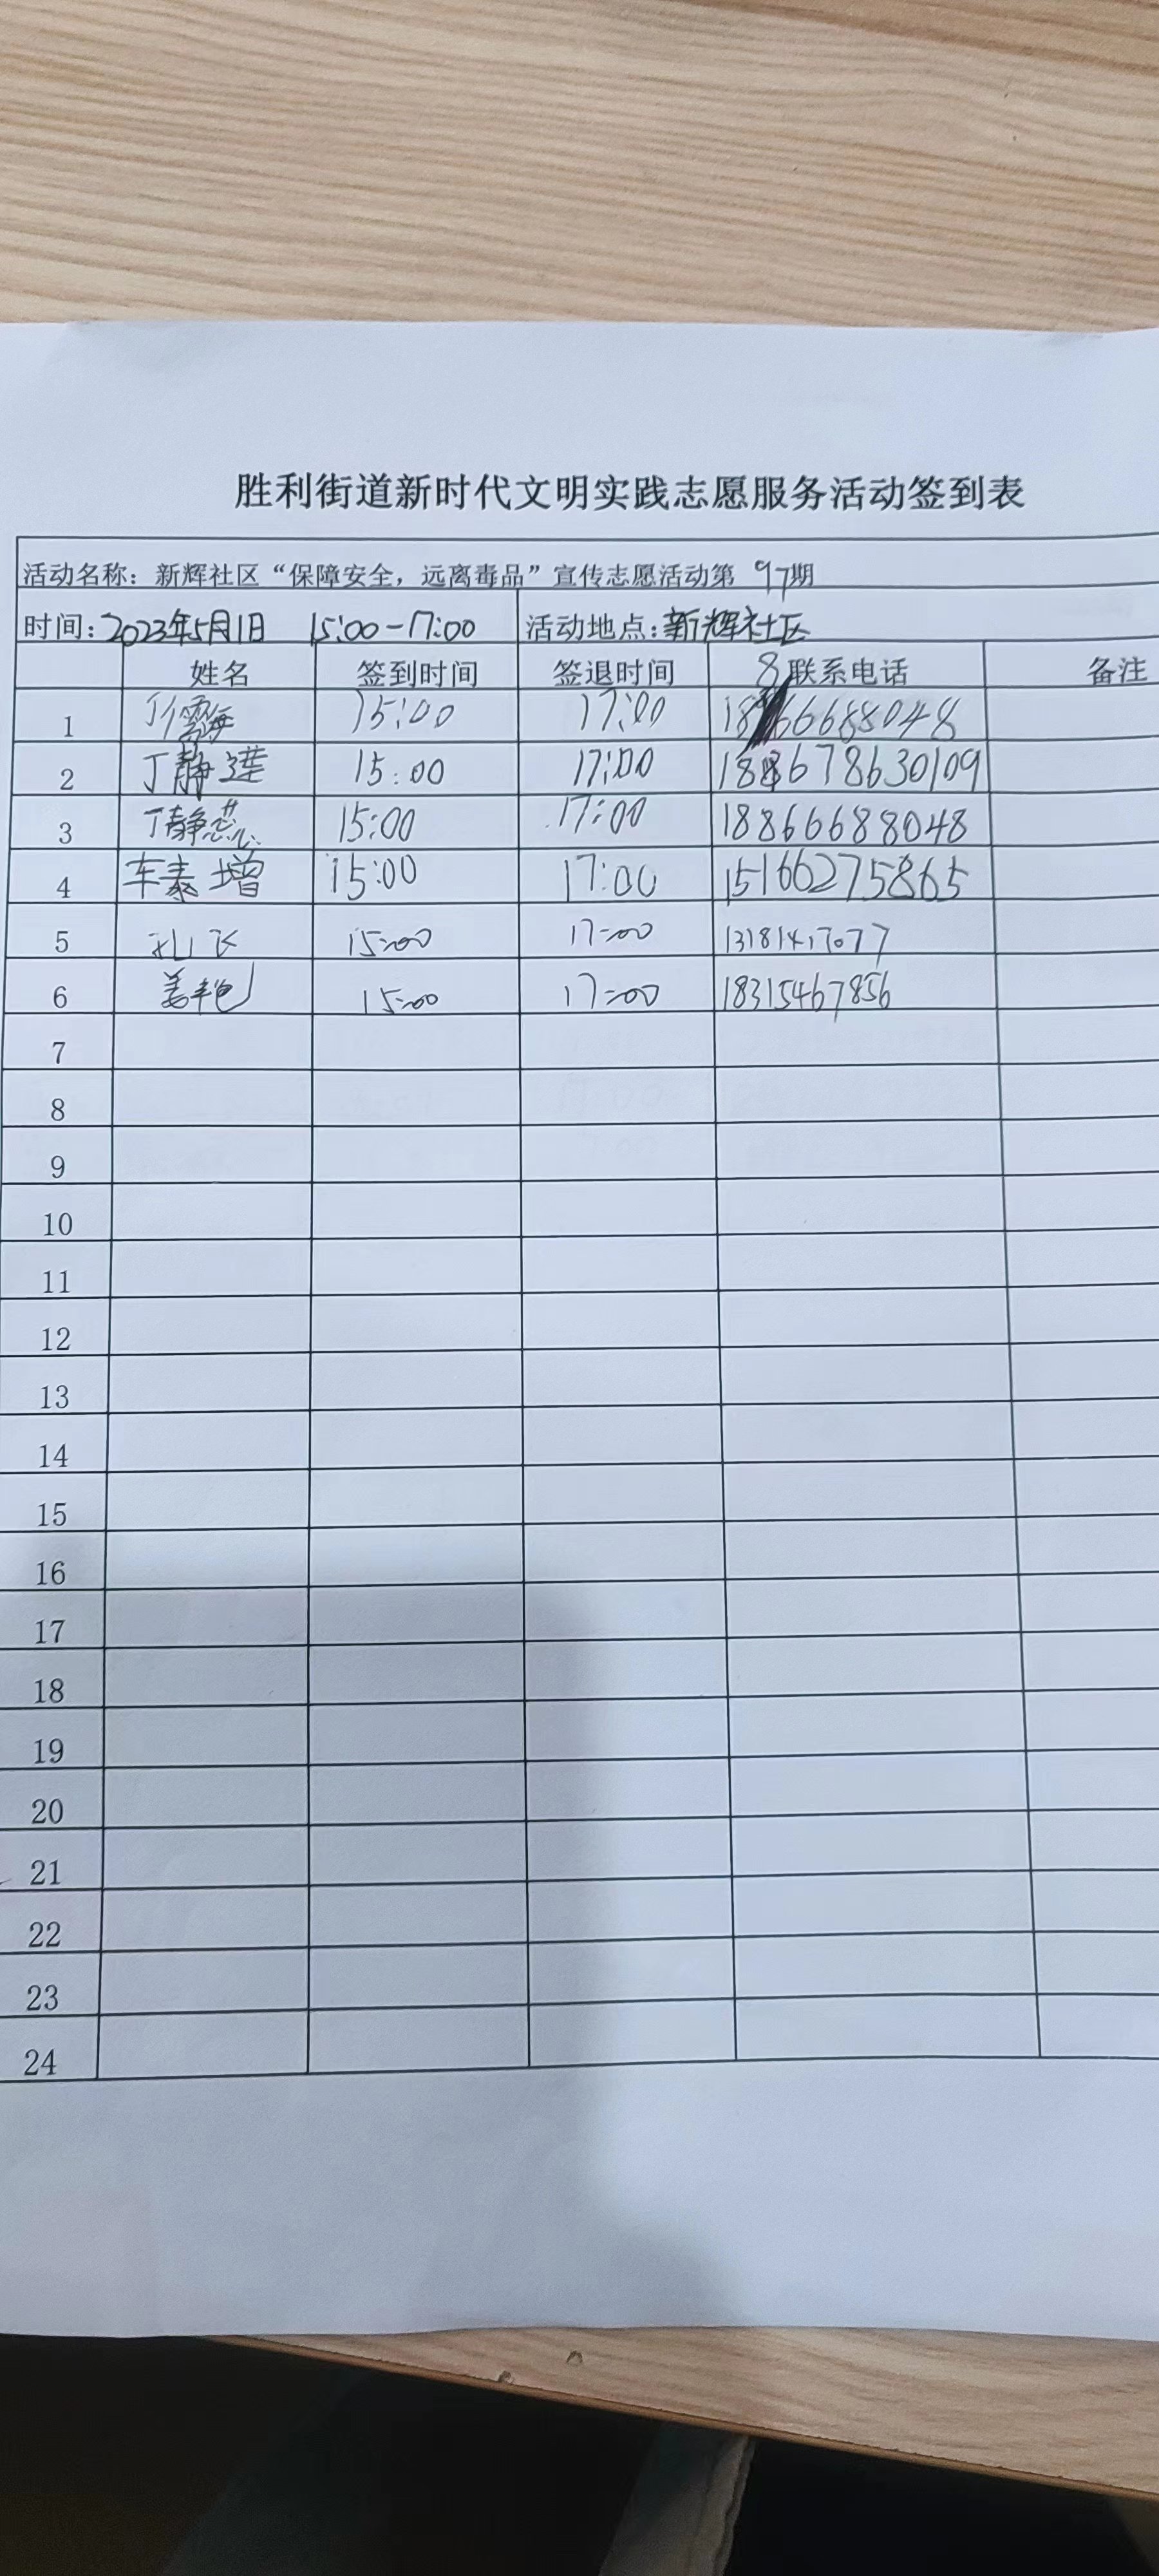 胜利街道新时代文明实践志愿服务活动签到表
活动名称：新辉社区“保障安全，远离毒品”宣传志愿活动第 97期
时间：2023年5月1日 15:00-17:00 活动地点：新辉社区
姓名 签到时间 签退时间 联系电话 备注
1 丁 15:00 17:00 18866688048
2 丁静莲 15:00 17:00
3 丁静蕊 15:00 17:00 18866688048
4 车泰增 15:00 17:00 15166275865
5 孔飞 15:00 17:00 13181417077
6 姜 15:00 17:00 18315467856
7
8
9
10
11
12
13
14
15
16
17
18
19
20
21
22
23
24